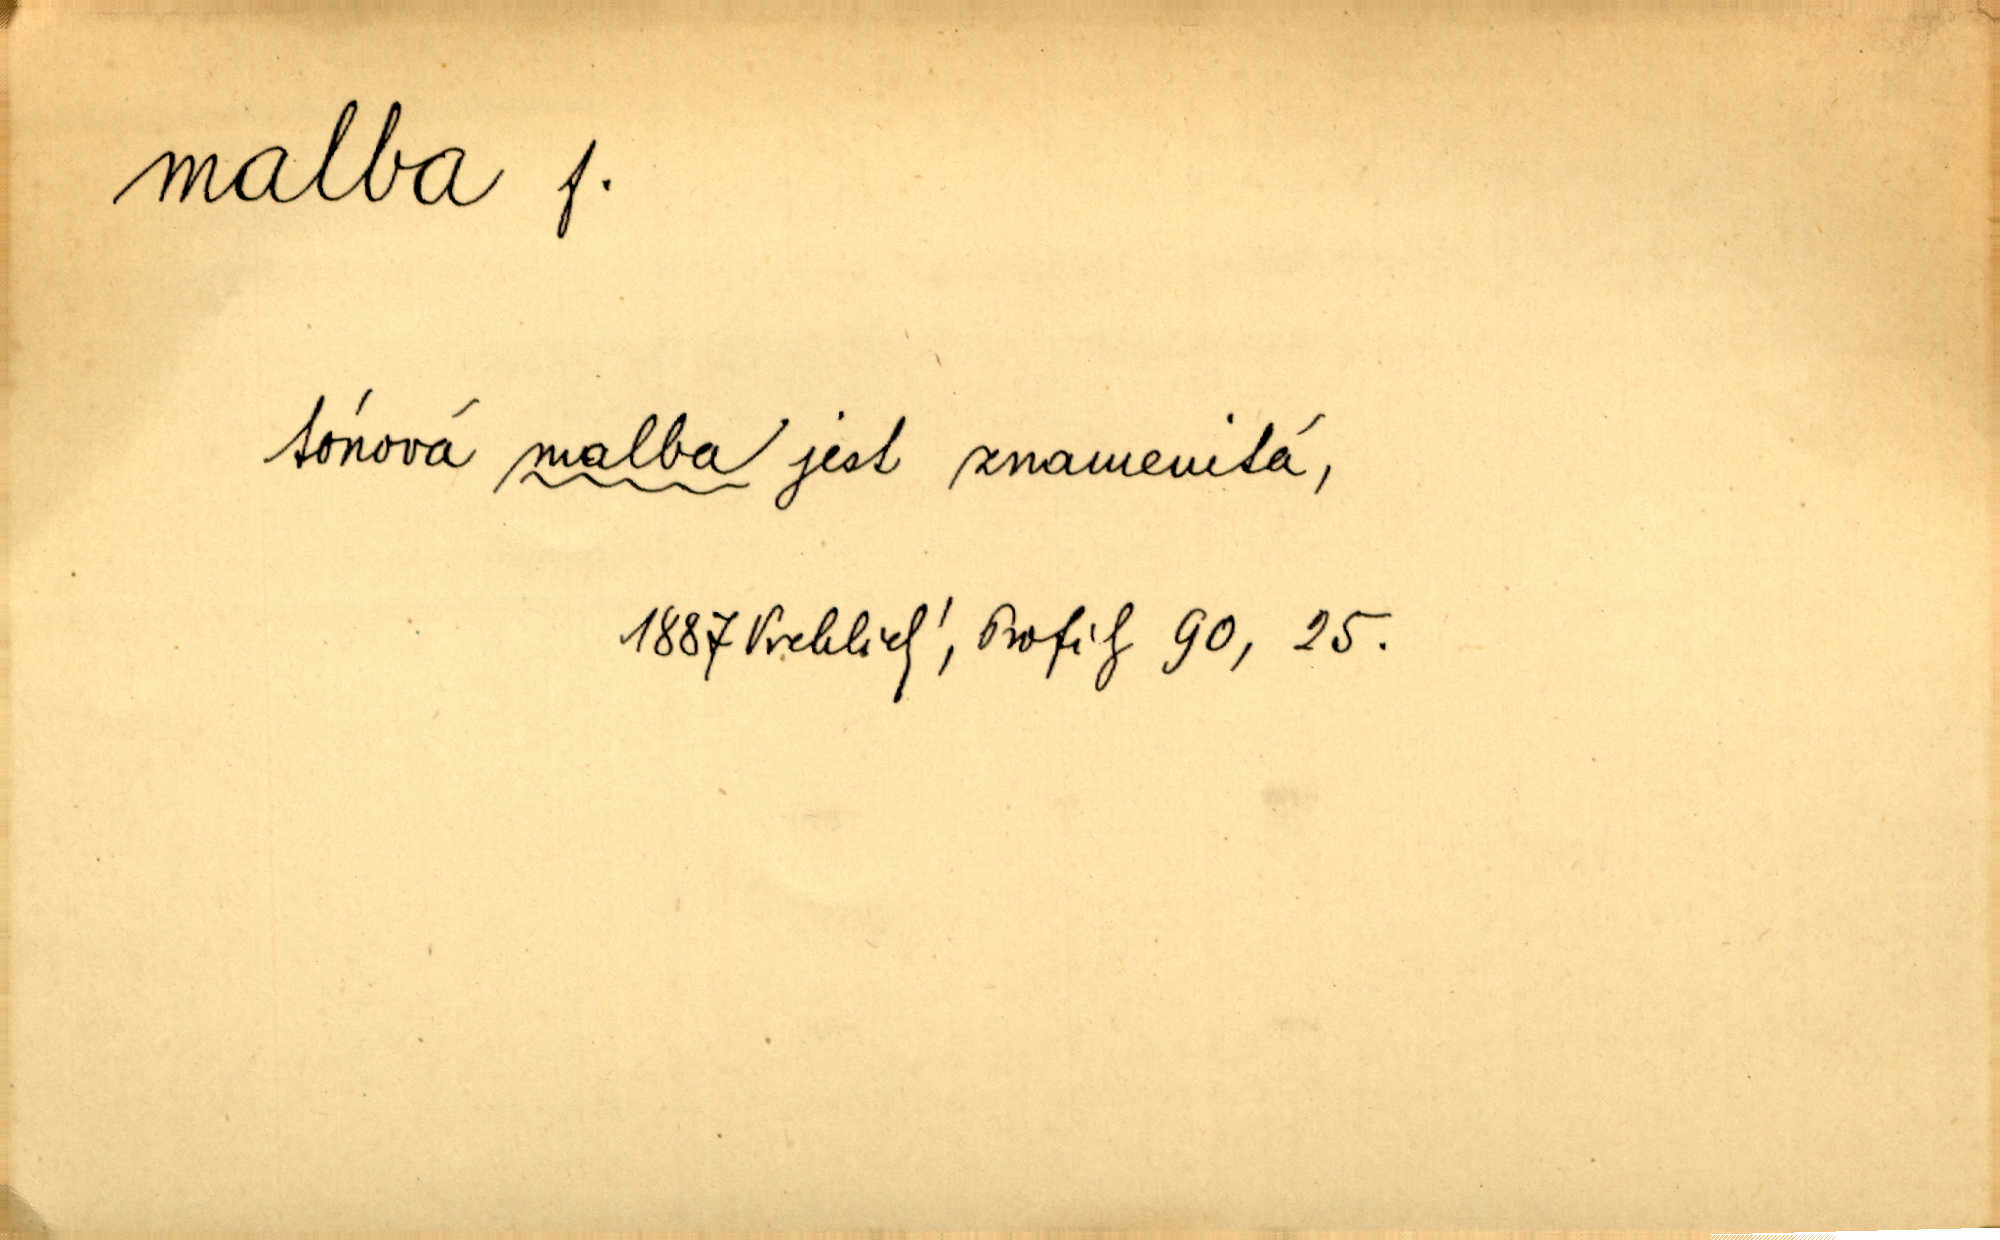 malba f.
tónová malba jest znamenitá,
1887 Vrchlický, Profily 90, 25.